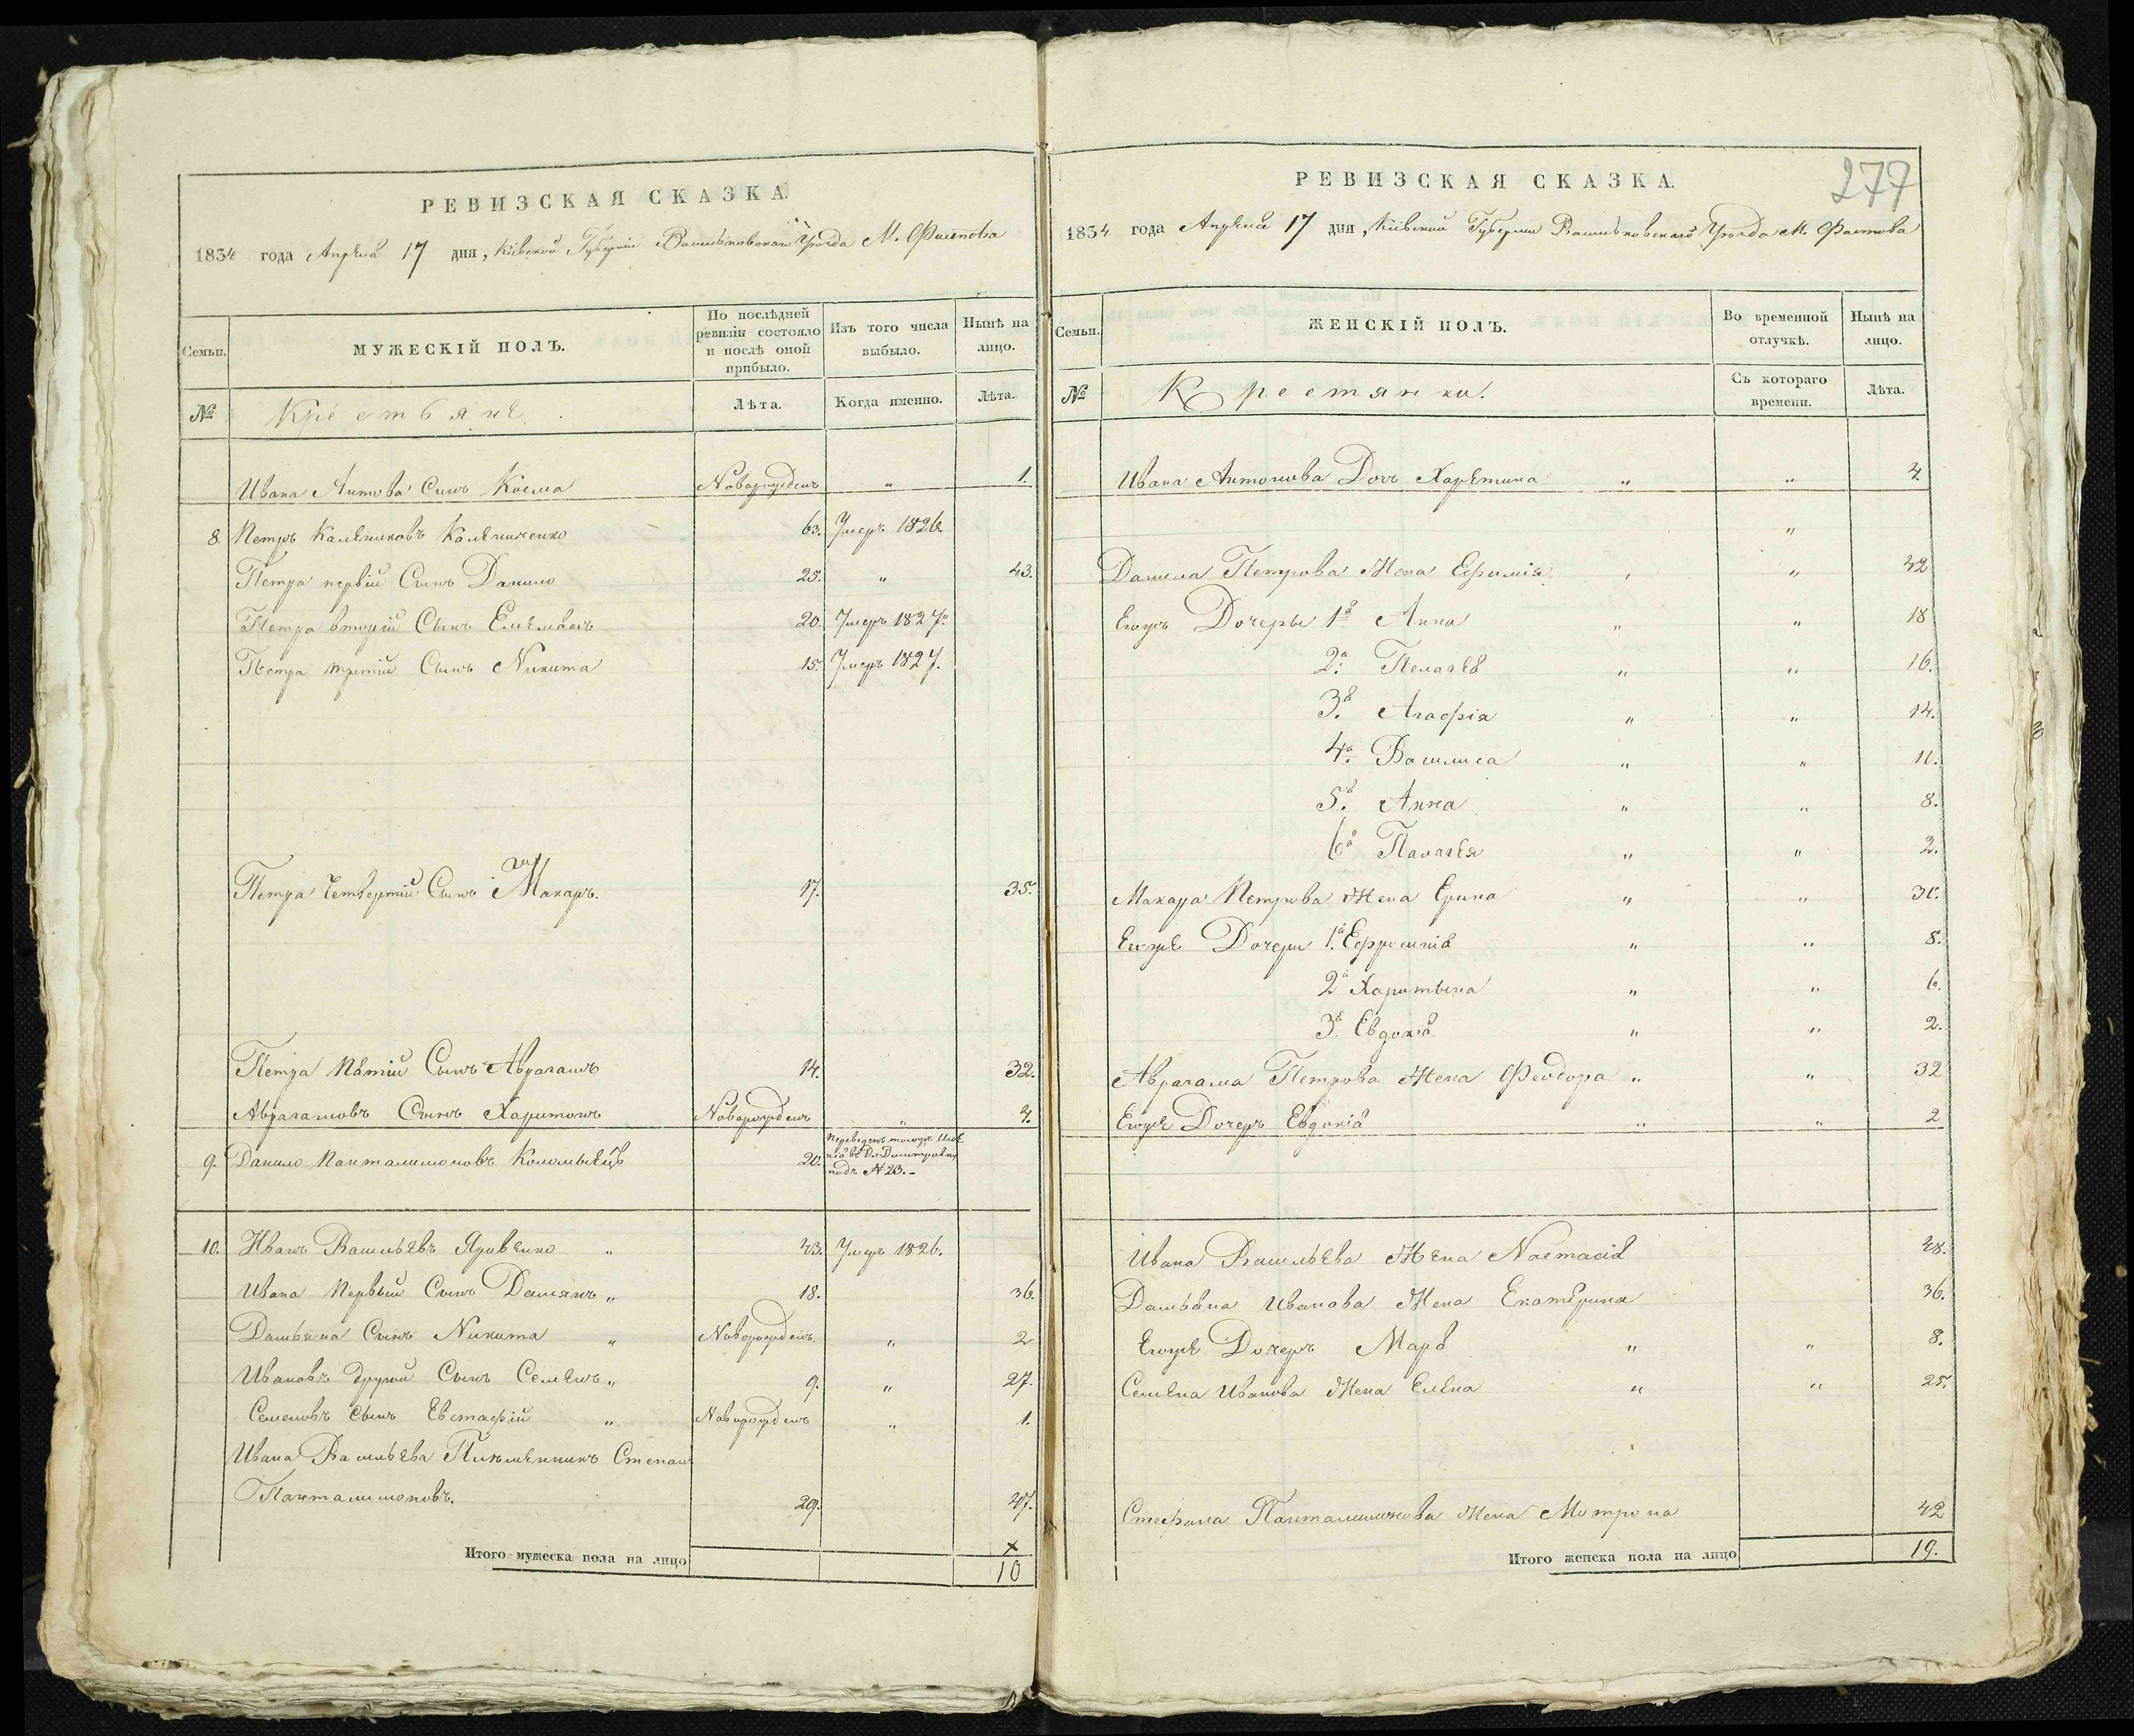 РЕВИЗСКАЯ СКАЗКА.
1834 года Апреля 17 дня, Кіевской Губерніи Васильковскаго Уѣзда М. Фастова
Семьи.
МУЖЕСКІЙ ПОЛЪ.
По послѣдней ревизіи состояло и послѣ оной прибыло.
Изъ того числа выбыло.
Нынѣ на лицо.
№
Крестьяне
Лѣта.
Когда именно.
Лѣта.
Ивана Антова Сынъ Козма Новорожденъ " 1.
8. Петръ Калениковъ Калениченко 63. Умеръ 1826.
Петра первій Сынъ Данило 25. " 43.
Петра вторій Сынъ Емельянъ 20. Умеръ 1827.
Петра третій Сынъ Никита 15. Умеръ 1827.
Петра Четвертій Сынъ Макаръ. 17. 35.
Петра Пятій Сынъ Аврагамъ 14. 32.
Аврагамовъ Сынъ Харитонъ Новорожденъ " 4.
9. Данило Панталимоновъ Коломыецъ 20. Переведенъ
подъ № 23.
10. Иванъ Васильевъ Яровенко " 43. Умеръ 1826.
Ивана Первый Сынъ Дамянъ " 18. 36.
Дамьяна Сынъ Никита " Новорожденъ. " 2
Ивановъ другой Сынъ Семенъ " 9. " 27.
Семеновъ Сынъ Евстафій " Новорожденъ " 1.
Ивана Васильева Племенникъ Степанъ
Панталимоновъ. 29. 47.
Итого мужеска пола на лицо 10
277
РЕВИЗСКАЯ СКАЗКА.
1834 года Апреля 17 дня, Кіевской Губерніи Васильковскаго Уѣзда М. Фастова
Семьи.
ЖЕНСКІЙ ПОЛЪ.
Во временной отлучкѣ.
Нынѣ на лицо.
№
Крестянки.
Съ котораго времени.
Лѣта.
Ивана Антонова Доч Харетина " " 4.
"
Данила Петрова Жена Ефимія " " 42
Егожъ Дочеры 1я Анна " " 18
2я Пелагея " " 16.
3я Агафія " " 14.
4я Василиса " " 10.
5я Анна " " 8.
6я Палагея " " 2.
Макара Петрова Жена Ерина " " 30.
Егоже Дочери 1я Ефросинія " " 8.
2я Харитына " " 6.
3я Евдокія " " 2.
Аврагама Петрова Жена Феодора " " 32
Егоже Дочерь Евдокія " " 2
Ивана Васильева Жена Настасія 48.
Дамьяна Иванова Жена Екатерина 36.
Егоже Дочерь Маря " " 8.
Семена Иванова Жена Елена " " 25.
Стефана Панталимонова Жена Мотрона 42
Итого женска пола на лицо 19.